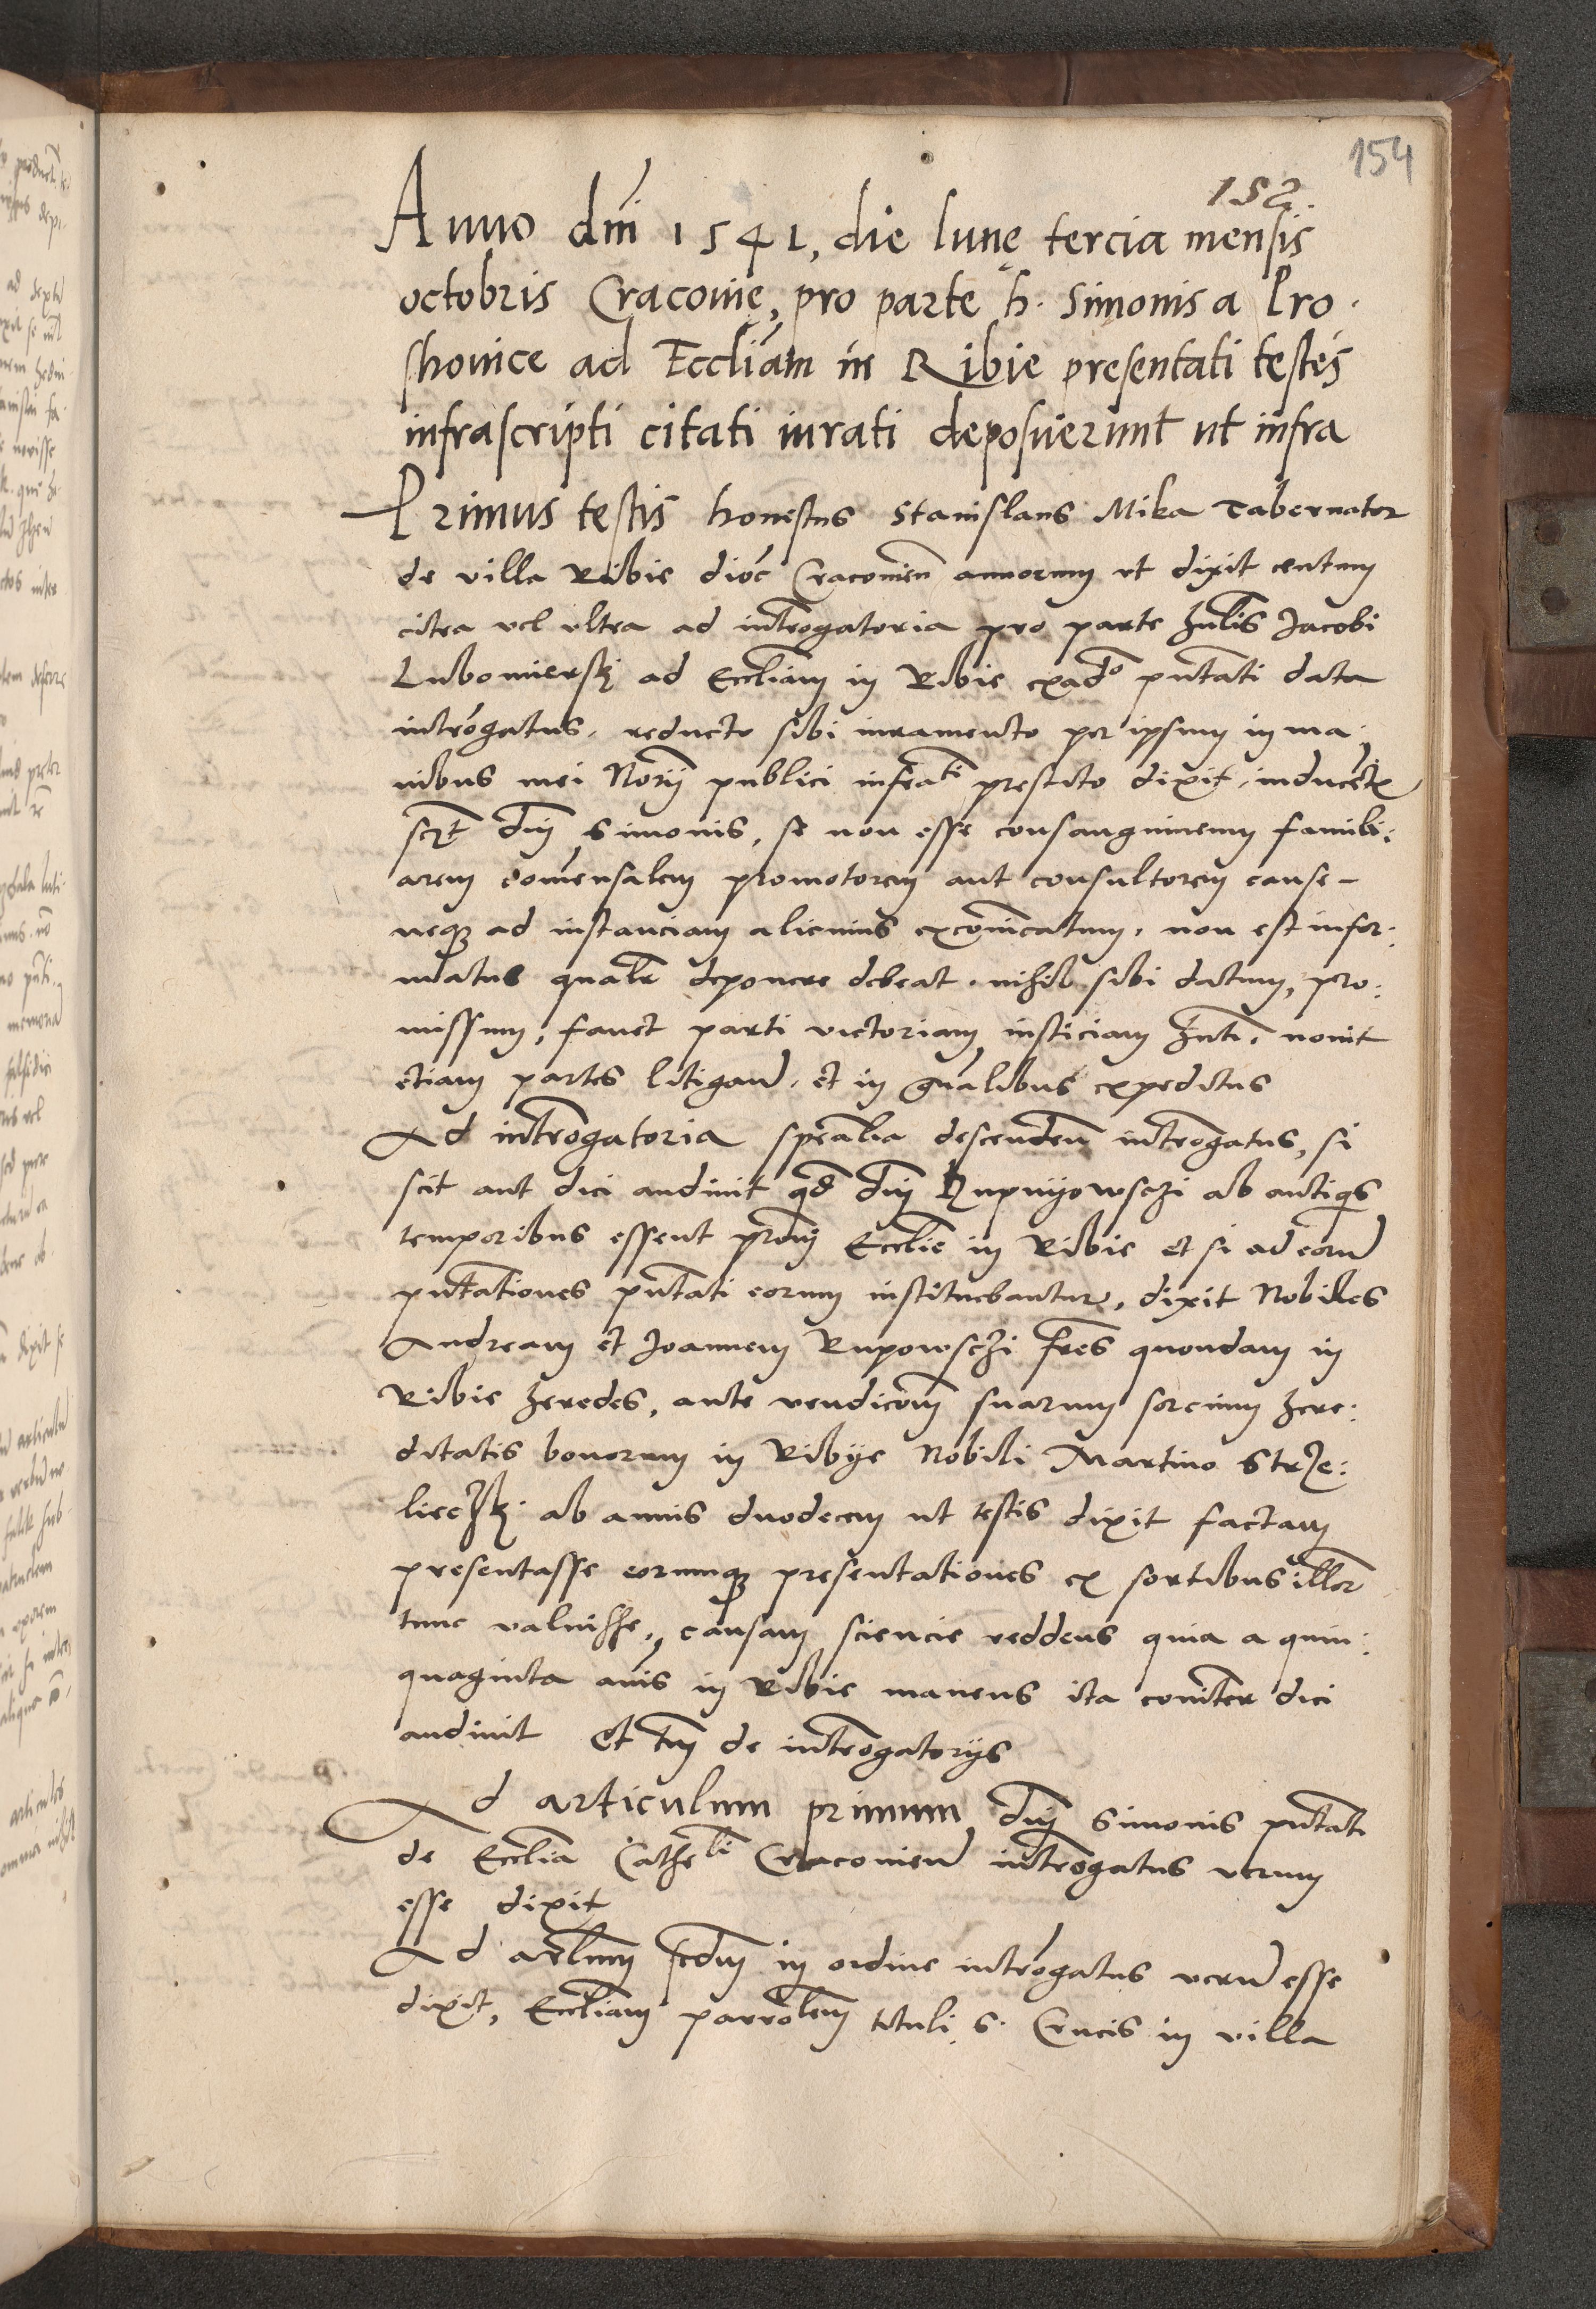 154
152.
Anno dni 1541, die lunę tercia mensis
octobris Cracouię, pro parte h. Simonis a Pro.
shouice ad Eccliam in Ribie presentati testes
infrascripti citati iurati deposuerunt ut infra
Primus testis honestus Stanislaus Mika Tabernator
de villa Ribie dioc Cracouien annorum vt dixit centum
citra vel vltra ad introgatoria pro parte hnlis Jacobi
Lubomierskj ad Eccliam in Ribie exado pntati data
introgatus, reducto sibi iuramento per ipsum in ma.
nibus mei Norij publici infrati prestito dixit, inducentem
dni Simonis, se non esse consanguineum famili:
arem comensalem promotorem aut consultorem cause
neque ad instanciam alicuius excomicatum, non est infor:
matus qualr deponere debeat. nihil sibi datum, pro:
missum, fauet parti victoriam iusticiam hnti, nouit
etiam partes litigan. et in gnalibus expeditus
Ad introgatoria spealia descenden introgatus, si
scit aut dici audiuit qd dni Rupnyowschi ab antiquis
temporibus essent proni Ecclie in Ribie et si ad eorum
pntationes pntati eorum instituebantur, dixit Nobiles
Andream et Joannem Rupowschi fres quondam in
Ribie heredes, ante vendicom suarum sorcium here:
ditatis bonorum in Ribye Nobili Martino Strze:
lieczkj ab annis duodecem ut testis dixit factam
presentasse eorumque presentationes ex sortibus illor
tunc valuisse, causam sciencie reddens quia a quin:
quaginta anis in Ribie manens ita comiter dici
audiuit Et tm de introgatorijs
Ad articulum primum dni Simonis pntati
de Ecclia Cathedli Cracouien introgatus verum
esse dixit
Ad arlum scdm in ordine introgatus verum esse
dixit, Eccliam parrolem tituli S. Crucis in villa